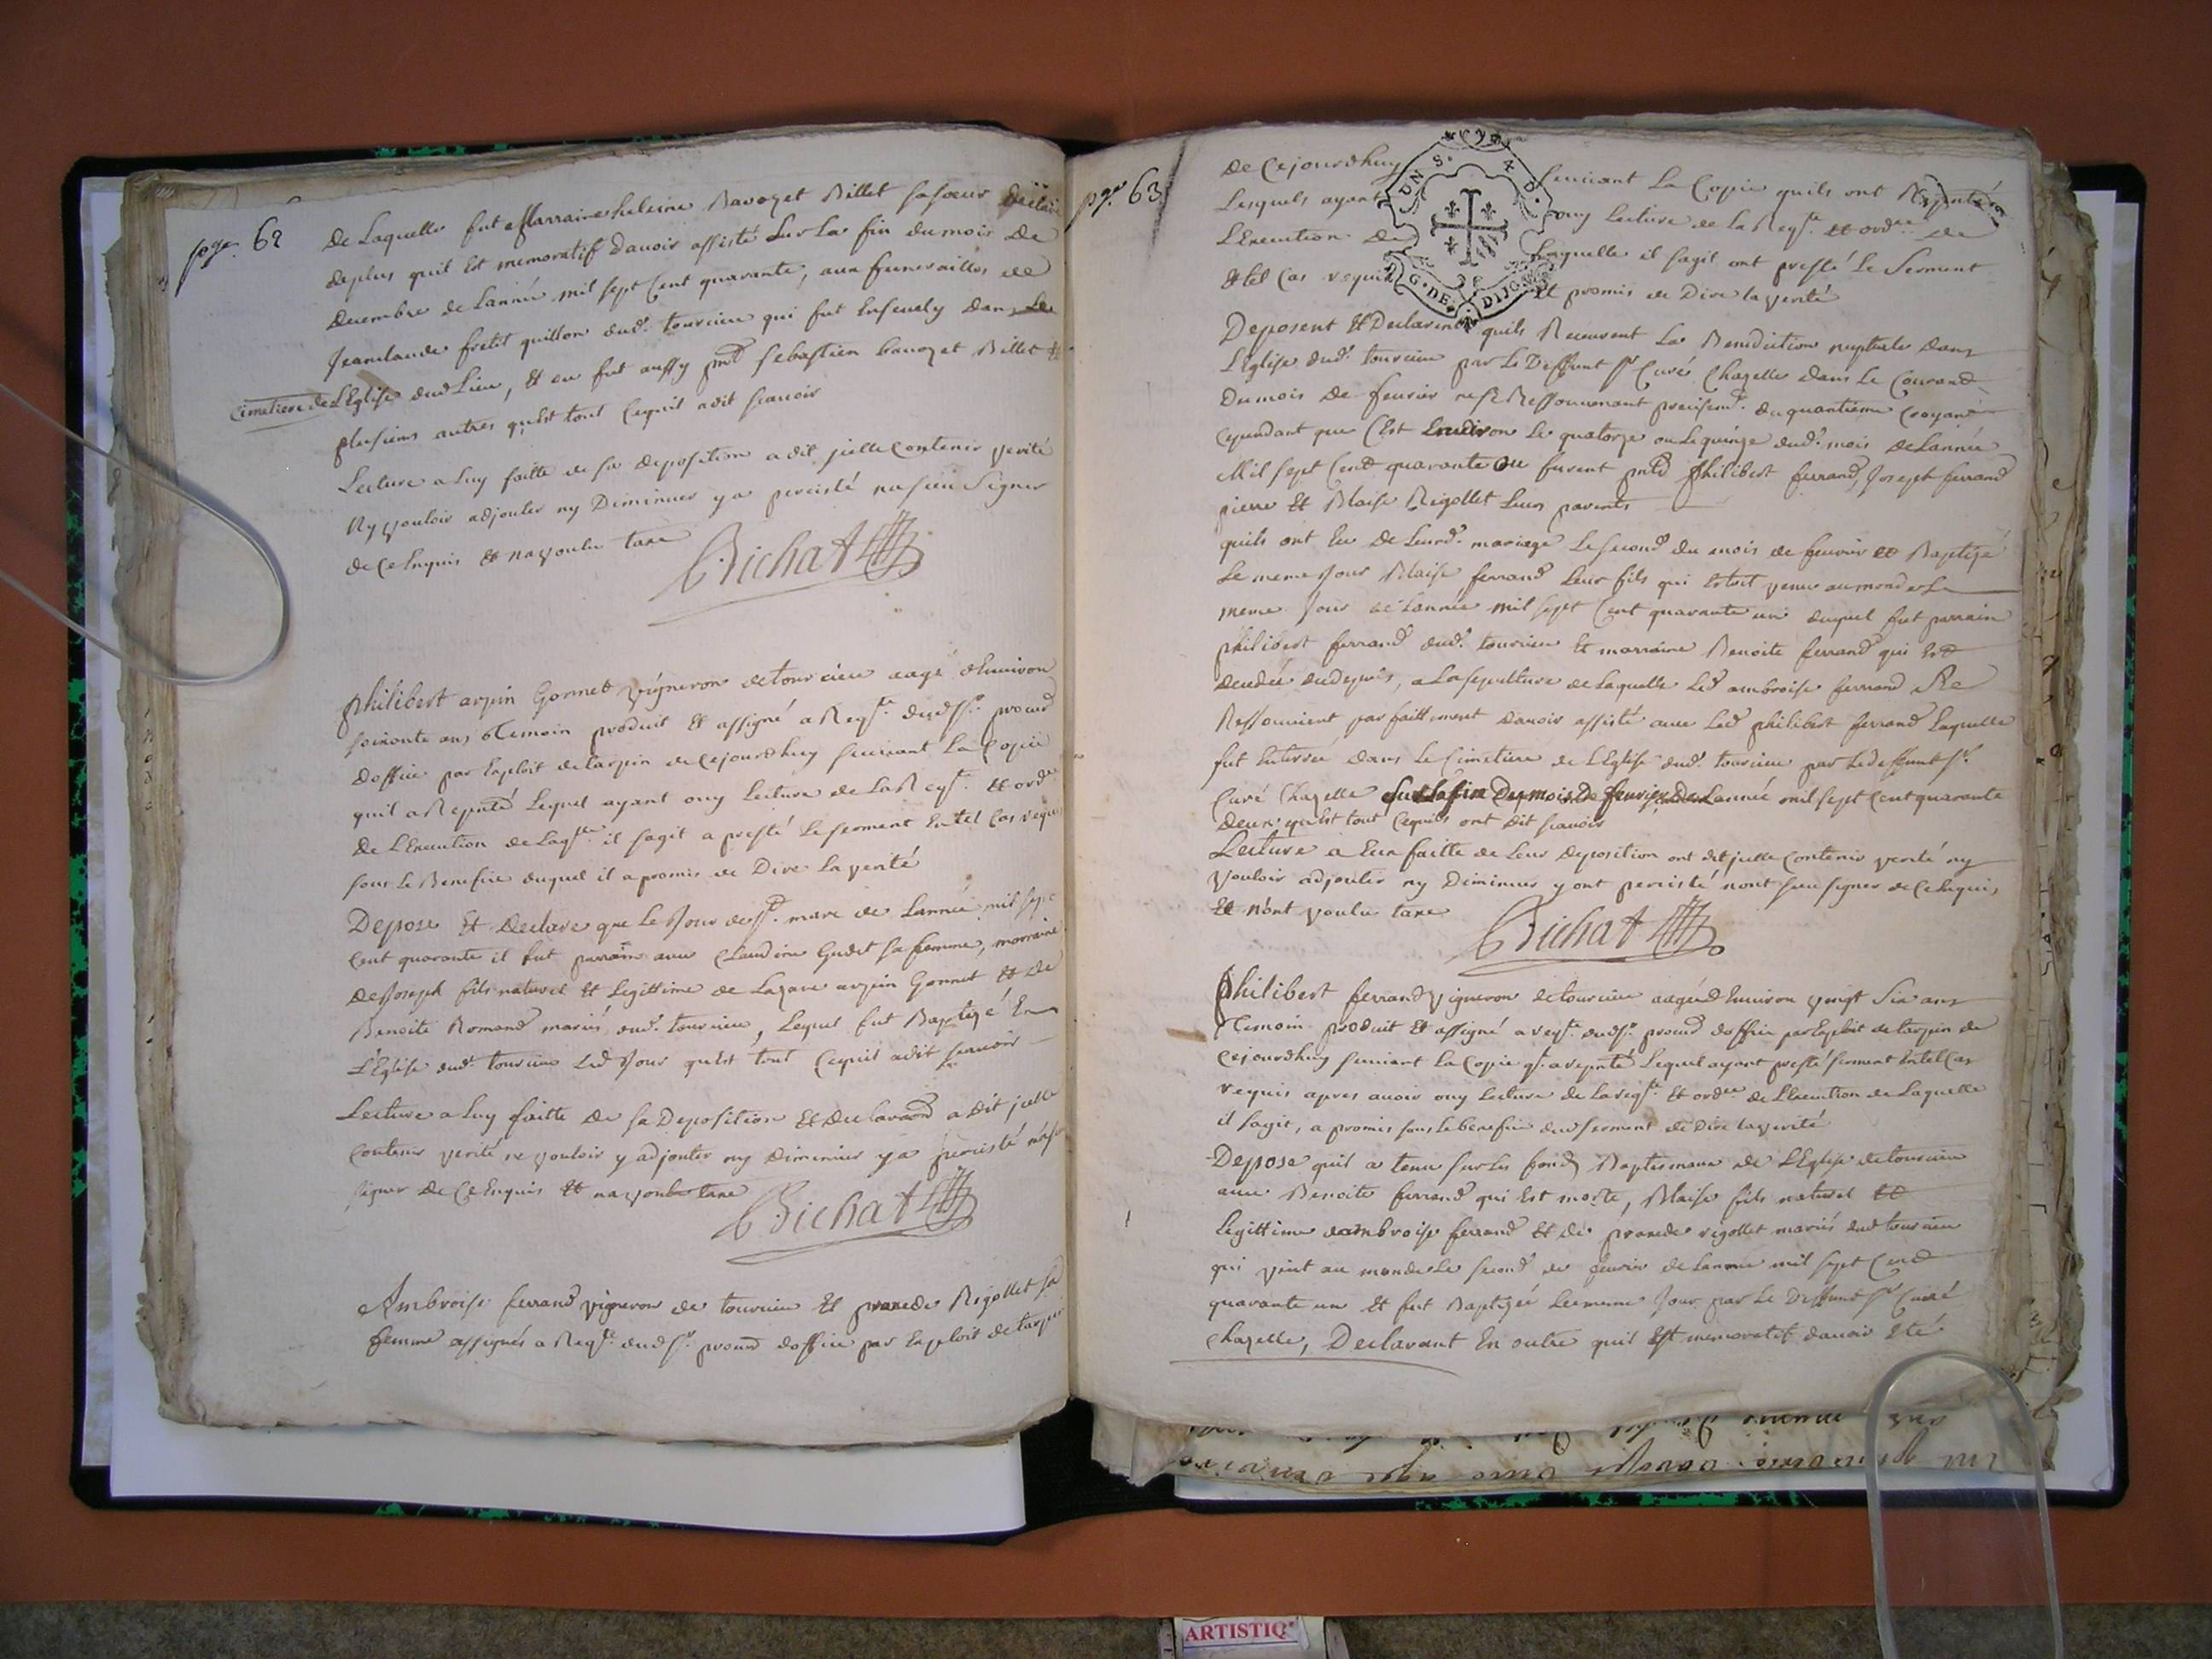 page 62
De Laquelle fut Marraine heleine Bavozet Billet sa soeur Declare
deplus quil Est memoratif davoir assisté Sur La fin du mois De
Decembre de Lannée mil sept Cent quarante, aux funerailles de
Jeanclaude fretit quillon dud.t tourcieu qui fut Ensevely dans Le
Cimetiere de LEglise dud Lieu, Et ou fut aussy pnt Sebastien bavozet Billet Et
plusieurs autres qu'Est tout Cequil a dit scavoir
Lecture a Luy faitte de sa Deposition a dit jcelle Contenir verité
Ny vouloir adjouter ny Diminuer y a percisté na sceu Signer
de Ce Enquis Et na voulu taxe
Bichat
Philibert arpin Gonnet vigneron de tourcieu aagé d'Environ
soixante ans Temoin produit Et assigné a Reqte. dud sr. procur
d'office par Exploit de tarpin de Cejourdhuy suivant la Copie
quil a Repnté Lequel ayant ouy Lecture de La Reqte. Et ordce
De LExecution de Laqlle il sagit a presté Le serment En tel Cas requis
sous Le Benefice duquel il a promis de Dire La verité
Depose Et Declare que Le Jour de st. marc de Lannée mil sept
Cent quarante il fut parrain avec Claudine Gudet sa femme, marraine
De Joseph fils naturel Et Legittime de Lazare arpin Gonnet Et de
Benoite Romand mariés dud.t tourcieu, Lequel fut Baptizé En
LEglise dud.t tourcieu Led Jour qu'Est tout Cequil a dit scavoir
Lecture a Luy faitte De sa Deposition Et declaraon a dit jcelle
Contenir verité ne vouloir y adjouter ny Diminuer y a percisté na sceu
signer De Ce Enquis Et na voulu taxe
Bichat
Ambroise ferrand vigneron de tourcieu Et praxede Rigollet sa
femme assignés a Reqte. dud sr. procur d'office par Exploit de tarpin
pge. 63
De Cejourdhuy suivant La Copie quils ont Repnté
Lesquels ayant ouy Lecture de La Reqte. Et ordce. de
LExecution De Laquelle il sagit ont presté Le Serment
Et tel Cas requis Et promis de Dire la verité
G. DE DIJON
Deposent Et Declarent quils Receurent La Benediction nuptiale dans
LEglise dud.t tourcieu par Le Deffunt sr Curé Chazelle dans Le Courand
Du mois De fevrier ne se Ressouvenant precisemt. du quantieme Croyant
Cependant que C'Est Environ Le quatorze ou Le quinze dud.t mois de Lannée
Mil sept Cent quarante ou furent pnts Philibert ferrand, Joseph ferrand
pierre Et Blaise Rigollet Leurs parents
quils ont Eu de Leurd.t mariage Le second du mois de fevrier Et Baptizé
Le meme Jour Blaise ferrand Leur fils qui Etoit venu au monde Le
meme Jour de Lannée mil sept Cent quarante un duquel fut parrain
philibert ferrand dud.t tourcieu Et marraine Benoite ferrand qui Est
decedée du depuis, a La sepulture de Laquelle Led ambroise ferrand Se
Ressouvient parfaittement davoir assisté avec Led philibert ferrand Laquelle
fut Enterrée dans Le Cimetiere de LEglise dud.t tourcieu par Le deffunt sr.
Curé Chazelle Sur La fin Du mois De fevrier De Lannée mil sept Cent quarante
Deux qu'Est tout Cequils ont dit scavoir
Lecture a Eux faitte de Leur Deposition ont dit jcelle Contenir verité ny
vouloir adjouter ny Diminuer y ont percisté nont sceu signer de Ce Enquis
Et n'ont voulu taxe
Bichat
Philibert ferrand vigneron de tourcieu aagé d'Environ vingt six ans
Temoin produit Et assigné a reqte. dud sr. procur d'office par Exploit de tarpin de
Cejourdhuy suivant La Copie ql. a repnté Lequel ayant presté serment En tel Cas
requis apres avoir ouy Lecture de La reqte. Et ordce de LExecution de Laquelle
il sagit, a promis sous Le benefice dud serment de Dire La verité
Depose quil a tenu sur Les fonds Baptismaux de LEglise de tourcieu
avec Benoite ferrand qui Est morte, Blaise fils naturel Et
Legittime dambroise ferrand Et de praxede rigollet mariés dud tourcieu
qui vint au monde Le second de fevrier de Lannée mil sept Cent
quarante un Et fut Baptizée Le meme Jour par Le Deffunt sr Curé
Chazelle, Declarant En outre quil Est memoratif davoir Eté
ARTISTIQ